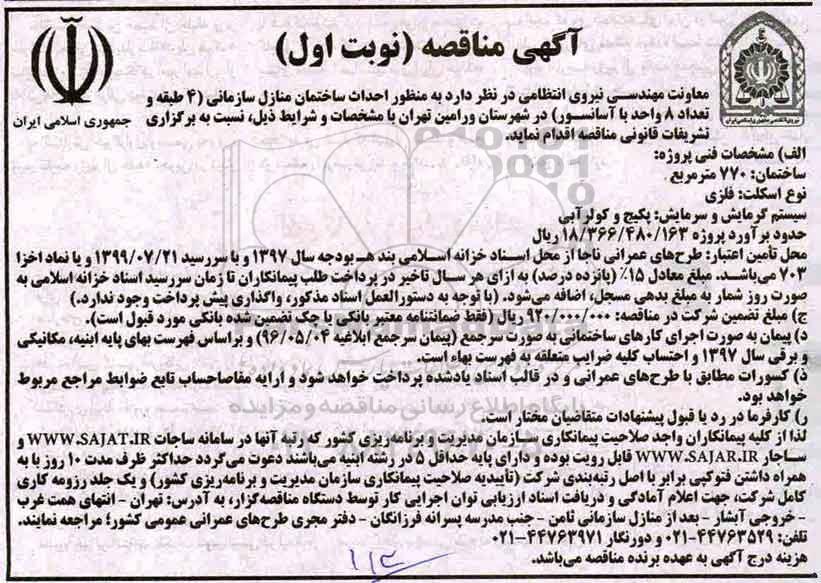 آگهی مناقصه (نوبت اول)
جمهوری اسلامی ایران
معاونت مهندسی نیروی انتظامی در نظر دارد به منظور احداث ساختمان منازل سازمانی (۴ طبقه و
تعداد ۸ واحد با آسانسور) در شهرستان ورامین تهران با مشخصات و شرایط ذیل، نسبت به برگزاری
تشریفات قانونی مناقصه اقدام نماید.
الف) مشخصات فنی پروژه:
ساختمان: ۷۷۰ مترمربع
نوع اسکلت: فلزی
سیستم گرمایش و سرمایش: پکیج و کولرآبی
حدود برآورد پروژه ۱۸/۳۶۶/۴۸۰/۱۶۳ ریال
محل تأمین اعتبار: طرح‌های عمرانی ناجا از محل اسناد خزانه اسلامی بند هـ بودجه سال ۱۳۹۷ و با سررسید ۱۳۹۹/۰۷/۲۱ و با نماد اخزا
۷۰۳ می‌باشد. مبلغ معادل ۱۵٪ (پانزده درصد) به ازای هر سال تاخیر در پرداخت طلب پیمانکاران تا زمان سررسید اسناد خزانه اسلامی به
صورت روز شمار به مبلغ بدهی مسجل، اضافه می‌شود. (با توجه به دستورالعمل اسناد مذکور، واگذاری پیش پرداخت وجود ندارد.)
ج) مبلغ تضمین شرکت در مناقصه: ۹۲۰/۰۰۰/۰۰۰ ریال (فقط ضمانتنامه معتبر بانکی یا چک تضمین شده بانکی مورد قبول است).
د) پیمان به صورت اجرای کارهای ساختمانی به صورت سرجمع (پیمان سرجمع ابلاغیه ۹۶/۰۵/۰۴) و براساس فهرست بهای پایه ابنیه، مکانیکی
و برقی سال ۱۳۹۷ و احتساب کلیه ضرایب متعلقه به فهرست بهاء است.
ذ) کسورات مطابق با طرح‌های عمرانی و در قالب اسناد یادشده پرداخت خواهد شود و ارایه مفاصاحساب تابع ضوابط مراجع مربوط
خواهد بود.
ر) کارفرما در رد یا قبول پیشنهادات متقاضیان مختار است.
لذا از کلیه پیمانکاران واجد صلاحیت پیمانکاری سازمان مدیریت و برنامه‌ریزی کشور که رتبه آنها در سامانه ساجات WWW.SAJAT.IR و
ساجار WWW.SAJAR.IR قابل رویت بوده و دارای پایه حداقل ۵ در رشته ابنیه می‌باشند دعوت می‌گردد حداکثر ظرف مدت ۱۰ روز با به
همراه داشتن فتوکپی برابر با اصل رتبه‌بندی شرکت (تأییدیه صلاحیت پیمانکاری سازمان مدیریت و برنامه‌ریزی کشور) و یک جلد رزومه کاری
کامل شرکت، جهت اعلام آمادگی و دریافت اسناد ارزیابی توان اجرایی کار توسط دستگاه مناقصه‌گزار، به آدرس: تهران - انتهای همت غرب
- خروجی آبشار - بعد از منازل سازمانی ثامن - جنب مدرسه پسرانه فرزانگان - دفتر مجری طرح‌های عمرانی عمومی کشور؛ مراجعه نمایند.
تلفن: ۴۴۷۶۳۵۲۹-۰۲۱ و دورنگار ۴۴۷۶۳۹۷۱-۰۲۱
هزینه درج آگهی به عهده برنده مناقصه می‌باشد.